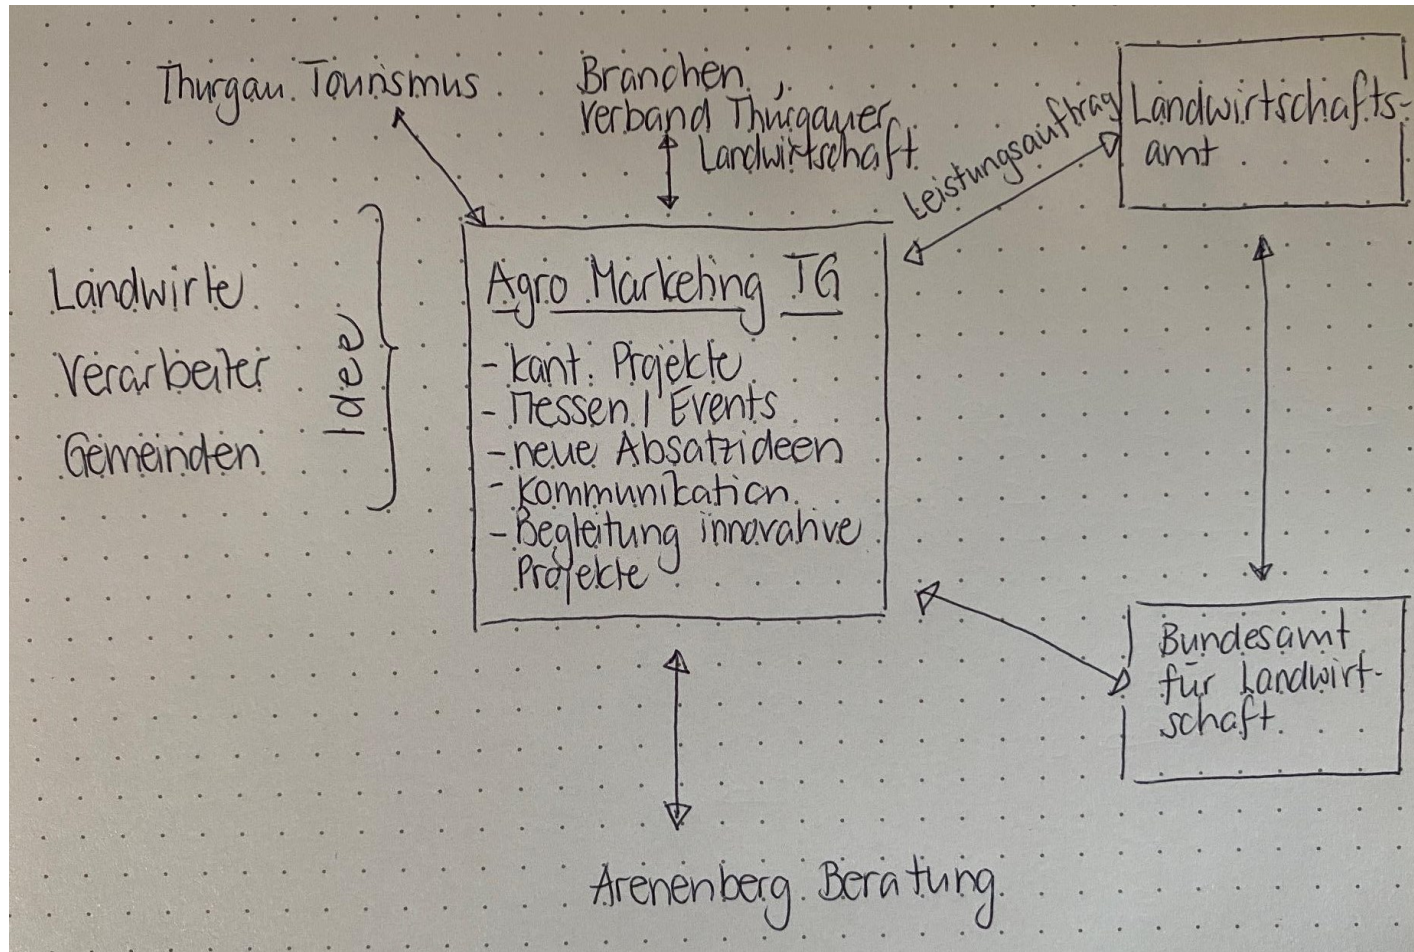 Thurgau Tourismus
Branchen
verband Thurgauer
Landwirtschaft
Leistungsauftrag
Landwirtschafts-
amt
Landwirte
Verarbeiter
Gemeinden
Idee
Agro Marketing TG
- kant. Projekte
- Messen / Events
- neue Absatzideen
- Kommunikation
- Begleitung innovative
Projekte
Bundesamt
für Landwirt-
schaft
Arenenberg Beratung